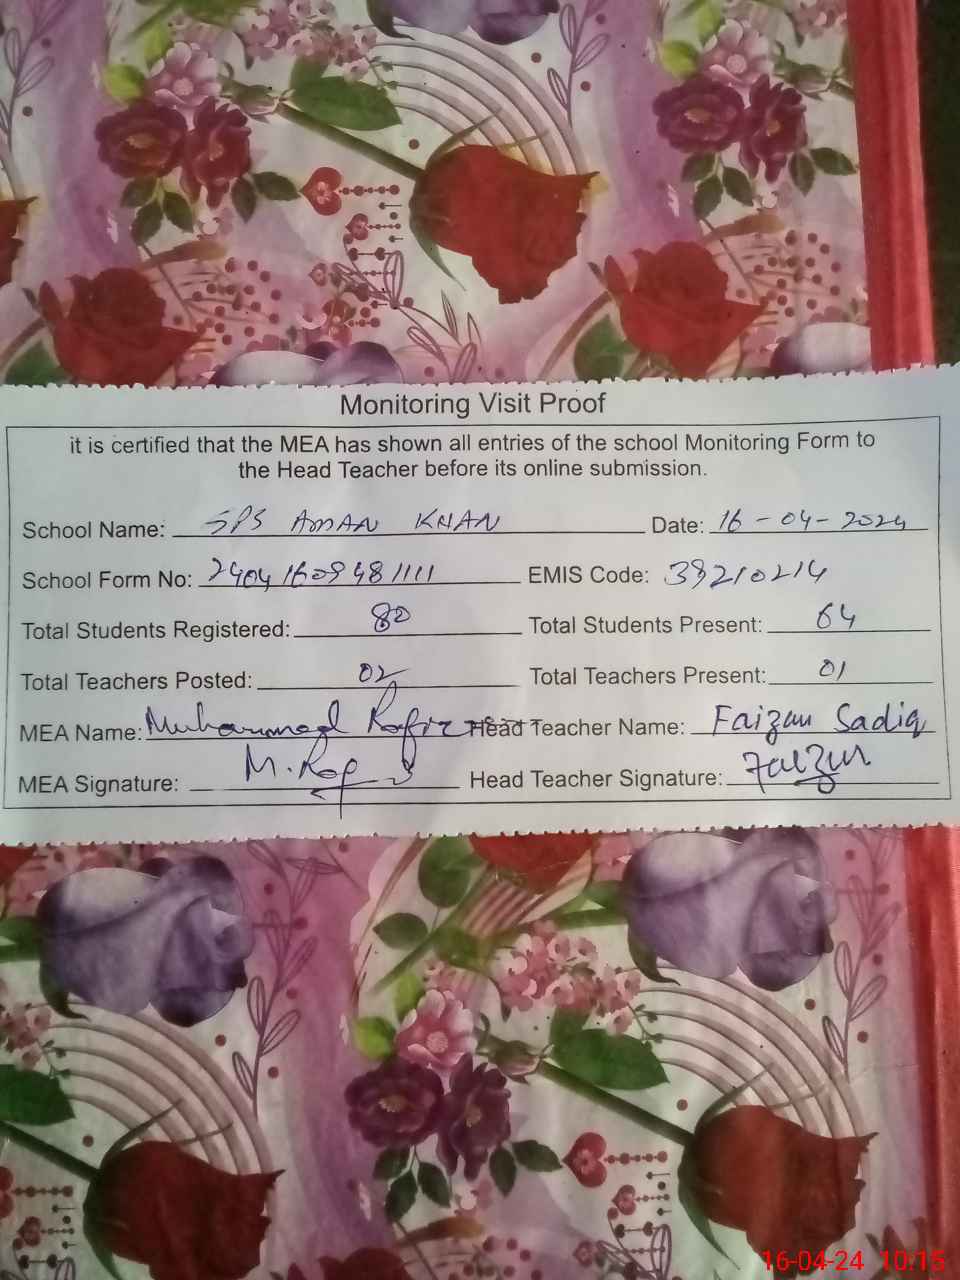 Monitoring Visit Proof
it is certified that the MEA has shown all entries of the school Monitoring Form to
the Head Teacher before its online submission.
School Name: SPS AMAN KHAN Date: 16-04-2024
School Form No: 24041609481111 EMIS Code: 39210214
Total Students Registered: 80 Total Students Present: 64
Total Teachers Posted: 02 Total Teachers Present: 01
MEA Name: Muhammad Rafiz Head Teacher Name: Faizan Sadiq
MEA Signature: M. Head Teacher Signature: Faizan
16-04-24 10:15